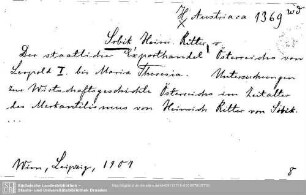 H. Austriaca 1369 wd
Srbik Heinr. Ritter v.
Der staatliche Exporthandel Österreichs von
Leopold I. bis Maria Theresia. Untersuchungen
zur Wirtschaftsgeschichte Österreichs im Zeitalter
des Merkantilismus von Heinrich Ritter von Srbik.
...
Wien, Leipzig, 1907
8